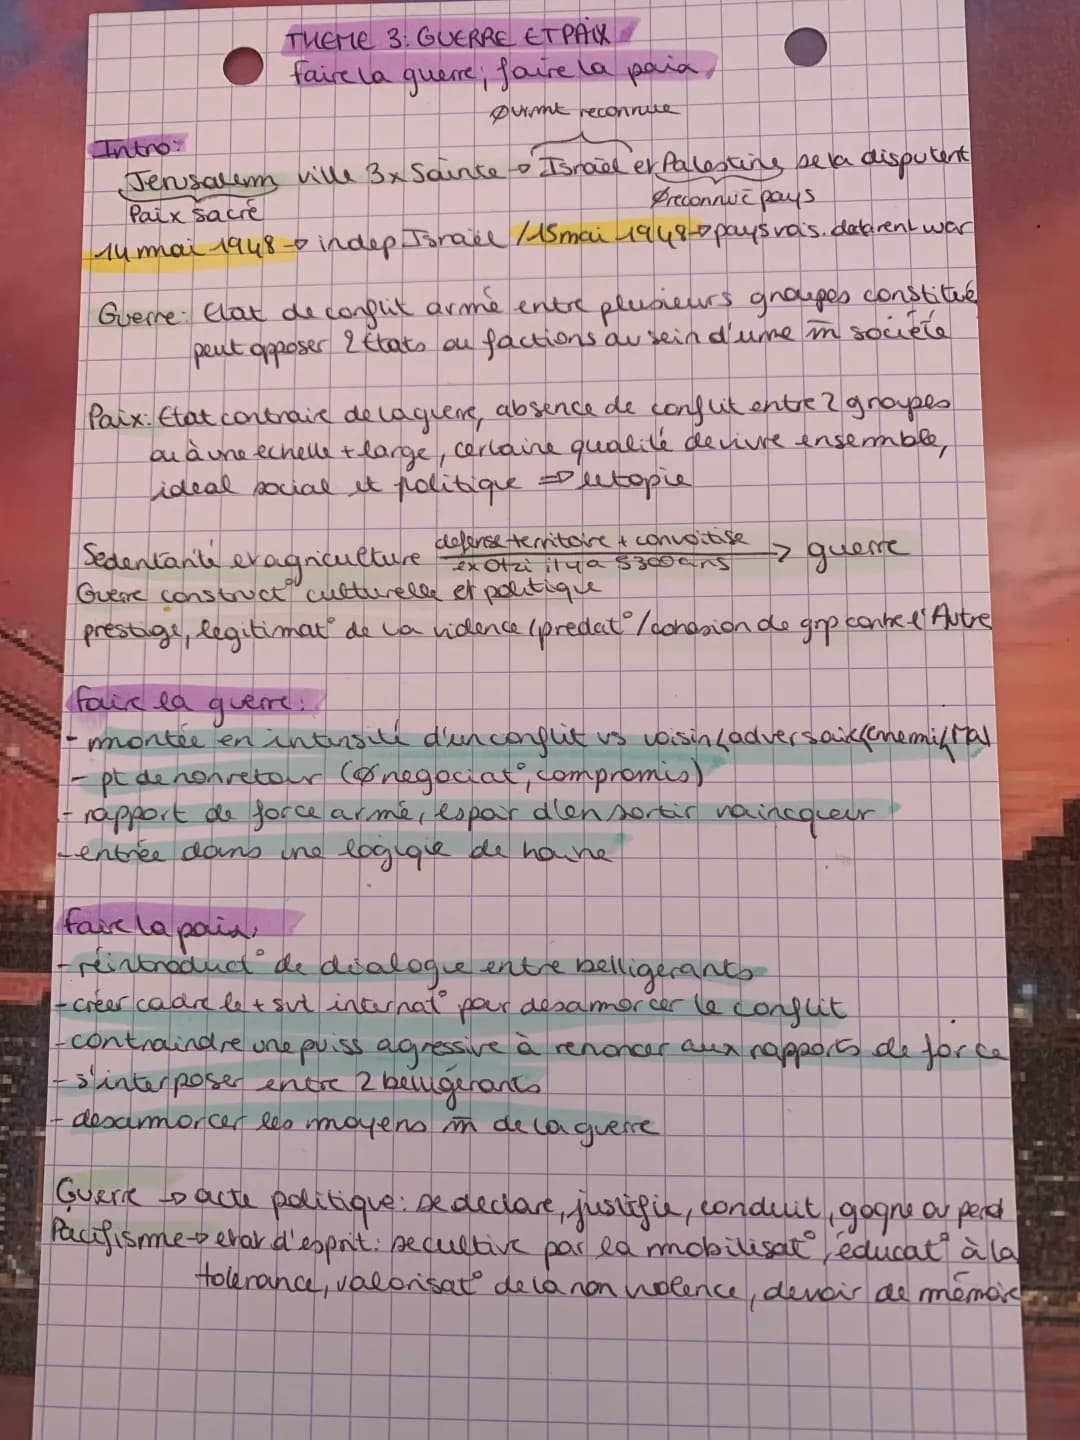 THEME 3: GUERRE ET PAIX
faire la guerre, faire la paix
Øvrmt reconnue
Intro:
Jerusalem ville 3x Sainte → Israël et Palestine se la disputent
Paix sacré
Øreconnue pays
14 mai 1948 → indep Israël / 15 mai 1948 → pays vois. declarent war
Guerre: Etat de conflit armé entre plusieurs groupes constitué
peut opposer 2 Etats ou factions au sein d'une m̄ société
Paix: Etat contraire de la guerre, absence de conflit entre 2 groupes
ou à une echelle + large, certaine qualité de vivre ensemble,
ideal social et politique ⇒ utopie
defense territoire + convoitise
Sedentarité et agriculture → guerre
ex Otzi il y a 5300 ans
Guerre construct° culturelle et politique
prestige, legitimat° de la violence (predat°/cohesion de grp contre l'Autre
faire la guerre:
- montée en intensité d'un conflit vs voisin/adversaire/ennemi/Mal
- pt de non retour (Ø negociat°, compromis)
- rapport de force armé, espoir d'en sortir vaincqueur
- entrée dans une logique de haine
faire la paix:
- réintroduct° de dialogue entre belligerants
- créer cadre le + svt internat° pour desamorcer le conflit
- contraindre une puiss agressive à renoncer aux rapports de force
- s'interposer entre 2 belligérants
- desamorcer les moyens m̄ de la guerre
Guerre → acte politique: se declare, justifie, conduit, gagne ou perd
Pacifisme → etat d'esprit: se cultive par la mobilisat°, éducat° à la
tolerance, valorisat° de la non violence, devoir de mémoire